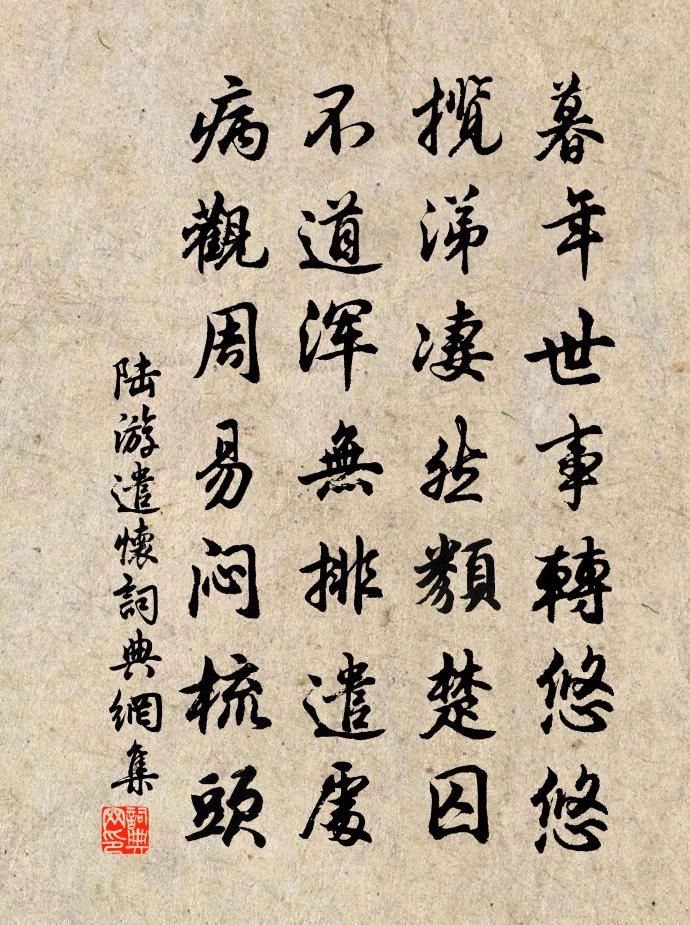 暮年世事轉悠悠
攬涕凄然類楚囚
不道渾無排遣處
病觀周易悶梳頭
陸游遣懷詞典網集
詞典網印